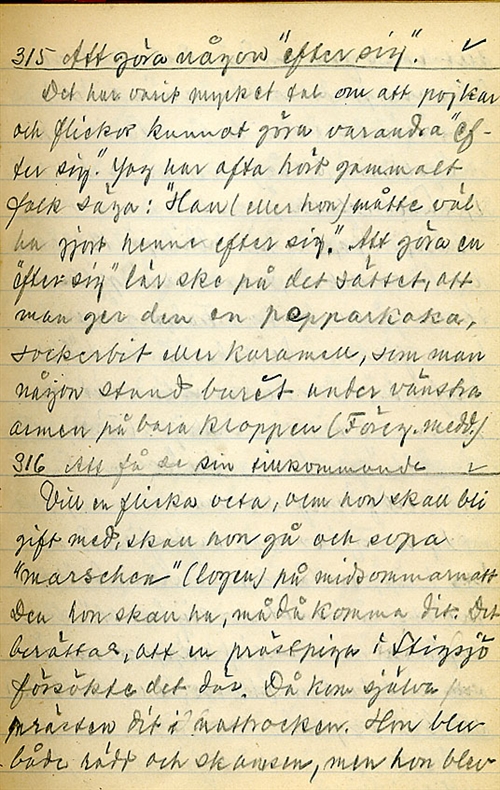 315 Att göra någon "efter sig". ✓
Det har varit mycket tal om att pojkar
och flickor kunnat göra varandra "ef-
ter sig." Jag har ofta hört gammalt
folk säga: "Han (eller hon) måtte väl
ha gjort henne efter sig." Att göra en
"efter sig" lär ske på det sättet, att
man ger den en pepparkaka,
sockerbit eller karamell, som man
någon stund burit under vänstra
armen på bara kroppen (Föreg. medd.)
316 Att få se sin tillkommande ✓
Vill en flicka veta, vem hon skall bli
gift med, skall hon gå och sopa
"marschen" (logen) på midsommarnatt
Den hon skall ha, må då komma dit. Det
berättas, att en prästpiga i Stigsjö
försökte det där. Då kom själva
prästen dit i nattrocken. Hon blev
både rädd och skamsen, men hon blev